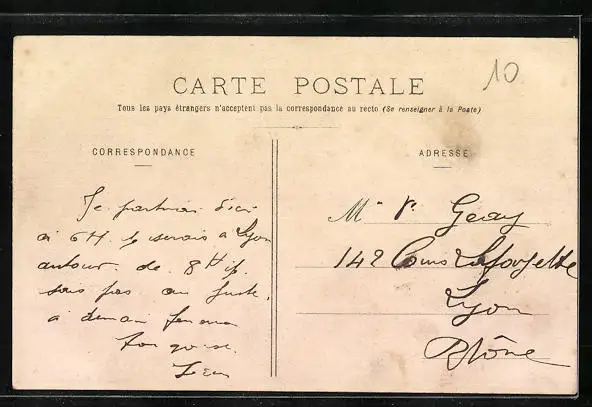 10
CARTE POSTALE
Tous les pays étrangers n'acceptent pas la correspondance au recto (Se renseigner à la Poste)
CORRESPONDANCE
Je partirai d'ici
à 6H. je serais a Lyon
autour. de 8H je
sais pas au juste.
a demain
Ton gosse.
Jean
ADRESSE
Mr V. Geay
142 Cours Lafayette
Lyon
Rhône